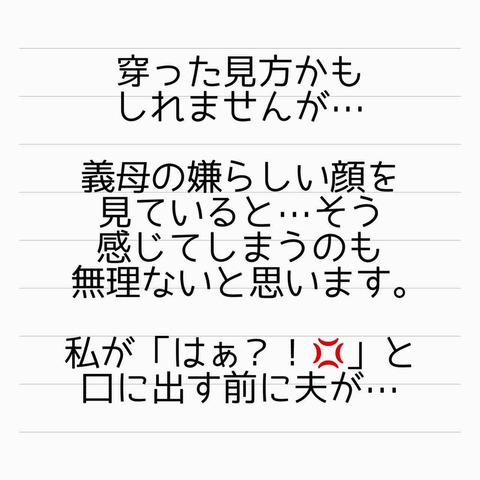 穿った見方かも
しれませんが…
義母の嫌らしい顔を
見ていると…そう
感じてしまうのも
無理ないと思います。
私が「はぁ？！💢」と
口に出す前に夫が…